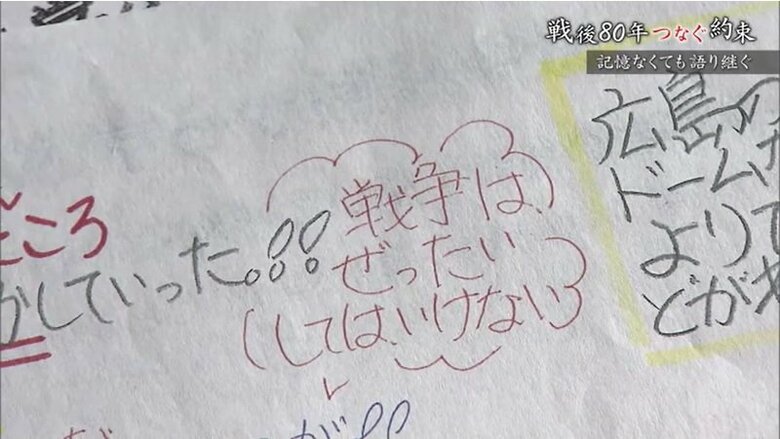 戦後80年つなぐ約束
記憶なくても語り継ぐ
戦争は、
ぜったい
してはいけない
ころ
していった。
広島の
ドーム
より
どが